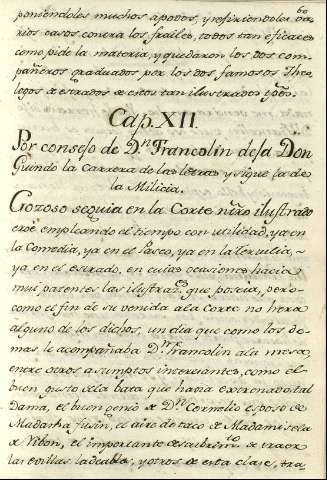 60
poniendoles muchos apodos, y refiriendoles va-
rios casos contra los frailes, todos tan eficaces
como pide la materia, y quedaron los dos com-
pañeros graduados por los dos famosos Theo
logos de estrados de estos tan ilustrados tpõs.
Cap. XII.
Por consejo de Dn. Francolin deja Don
Guindo la carrera de las letras y sigue la de
la Milicia.
Gozoso seguia en la Corte ntro ilustrado
eroe empleando el tiempo con utilidad, ya en
la Comedia, ya en el Paseo, ya en la tertulia,
ya en el estrado, en cuias ocasiones hacia
mui patentes las ilustrac.s que poseia, pero
como el fin de su venida a la Corte no hera
alguno de los dichos, un dia que como los de-
mas le acompañaba Dn. Francolin a la mesa,
entre otros asumptos interesantes, como el
buen gusto de la bata que havia extrenado tal
Dama, el buen genio de Dn. Cornelio esposo de
Madama fusin, el aire de taco de Madamisela
de Vibon, el importante descubrim.to de traer
las evillas ladeadas, y otros de esta clase, tra